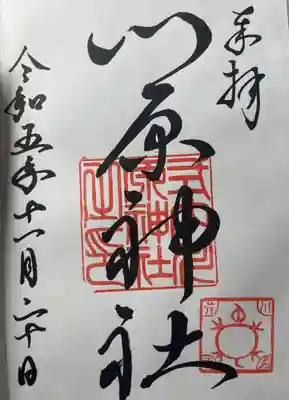 奉拝
川原神社
令和五年十一月二十日